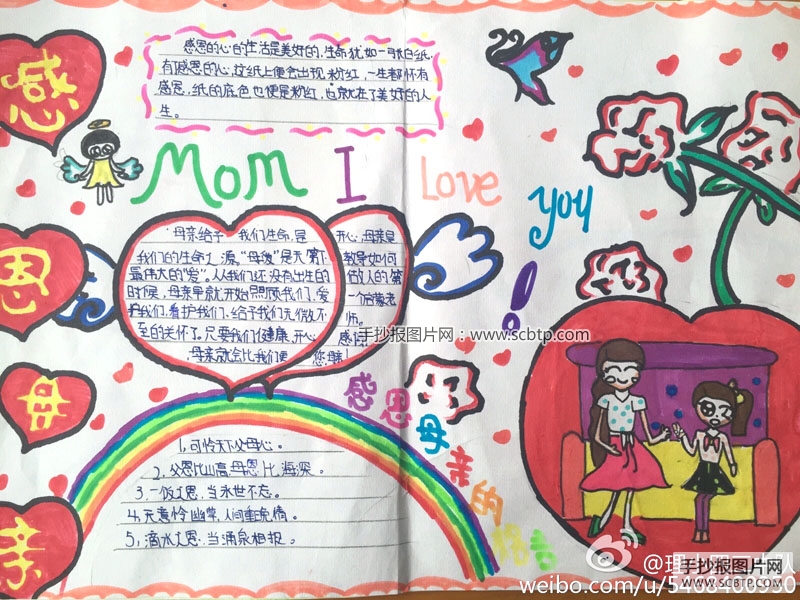 感恩的心的生活是美好的,生命犹如一张白纸,
有了感恩的心,这纸上便会出现粉红,一生都怀有
感恩,纸的底色也便是粉红,也就在了美好的人
生。
感
恩
母
亲
Mom I Love you!
母亲给予了我们生命,是
我们的生命之源,"母爱"是天下
最伟大的"爱"。从我们还没有出生的
时候,母亲早就开始照顾我们,爱
护我们,看护我们,给予我们无微不
至的关怀了。只要我们健康、开心
母亲就会比我们更
开心,母亲是
教导如何
做人的第
一个启蒙老
师。
感恩母亲的格言
1、可怜天下父母心。
2、父恩比山高,母恩比海深。
3、一饭之恩,当永世不忘。
4、天意怜幽草,人间重晚情。
5、滴水之恩,当涌泉相报。
手抄报图片网:www.scbtp.com
手抄报图片网
WWW.SCBTP.COM
weibo.com/u/5408400930